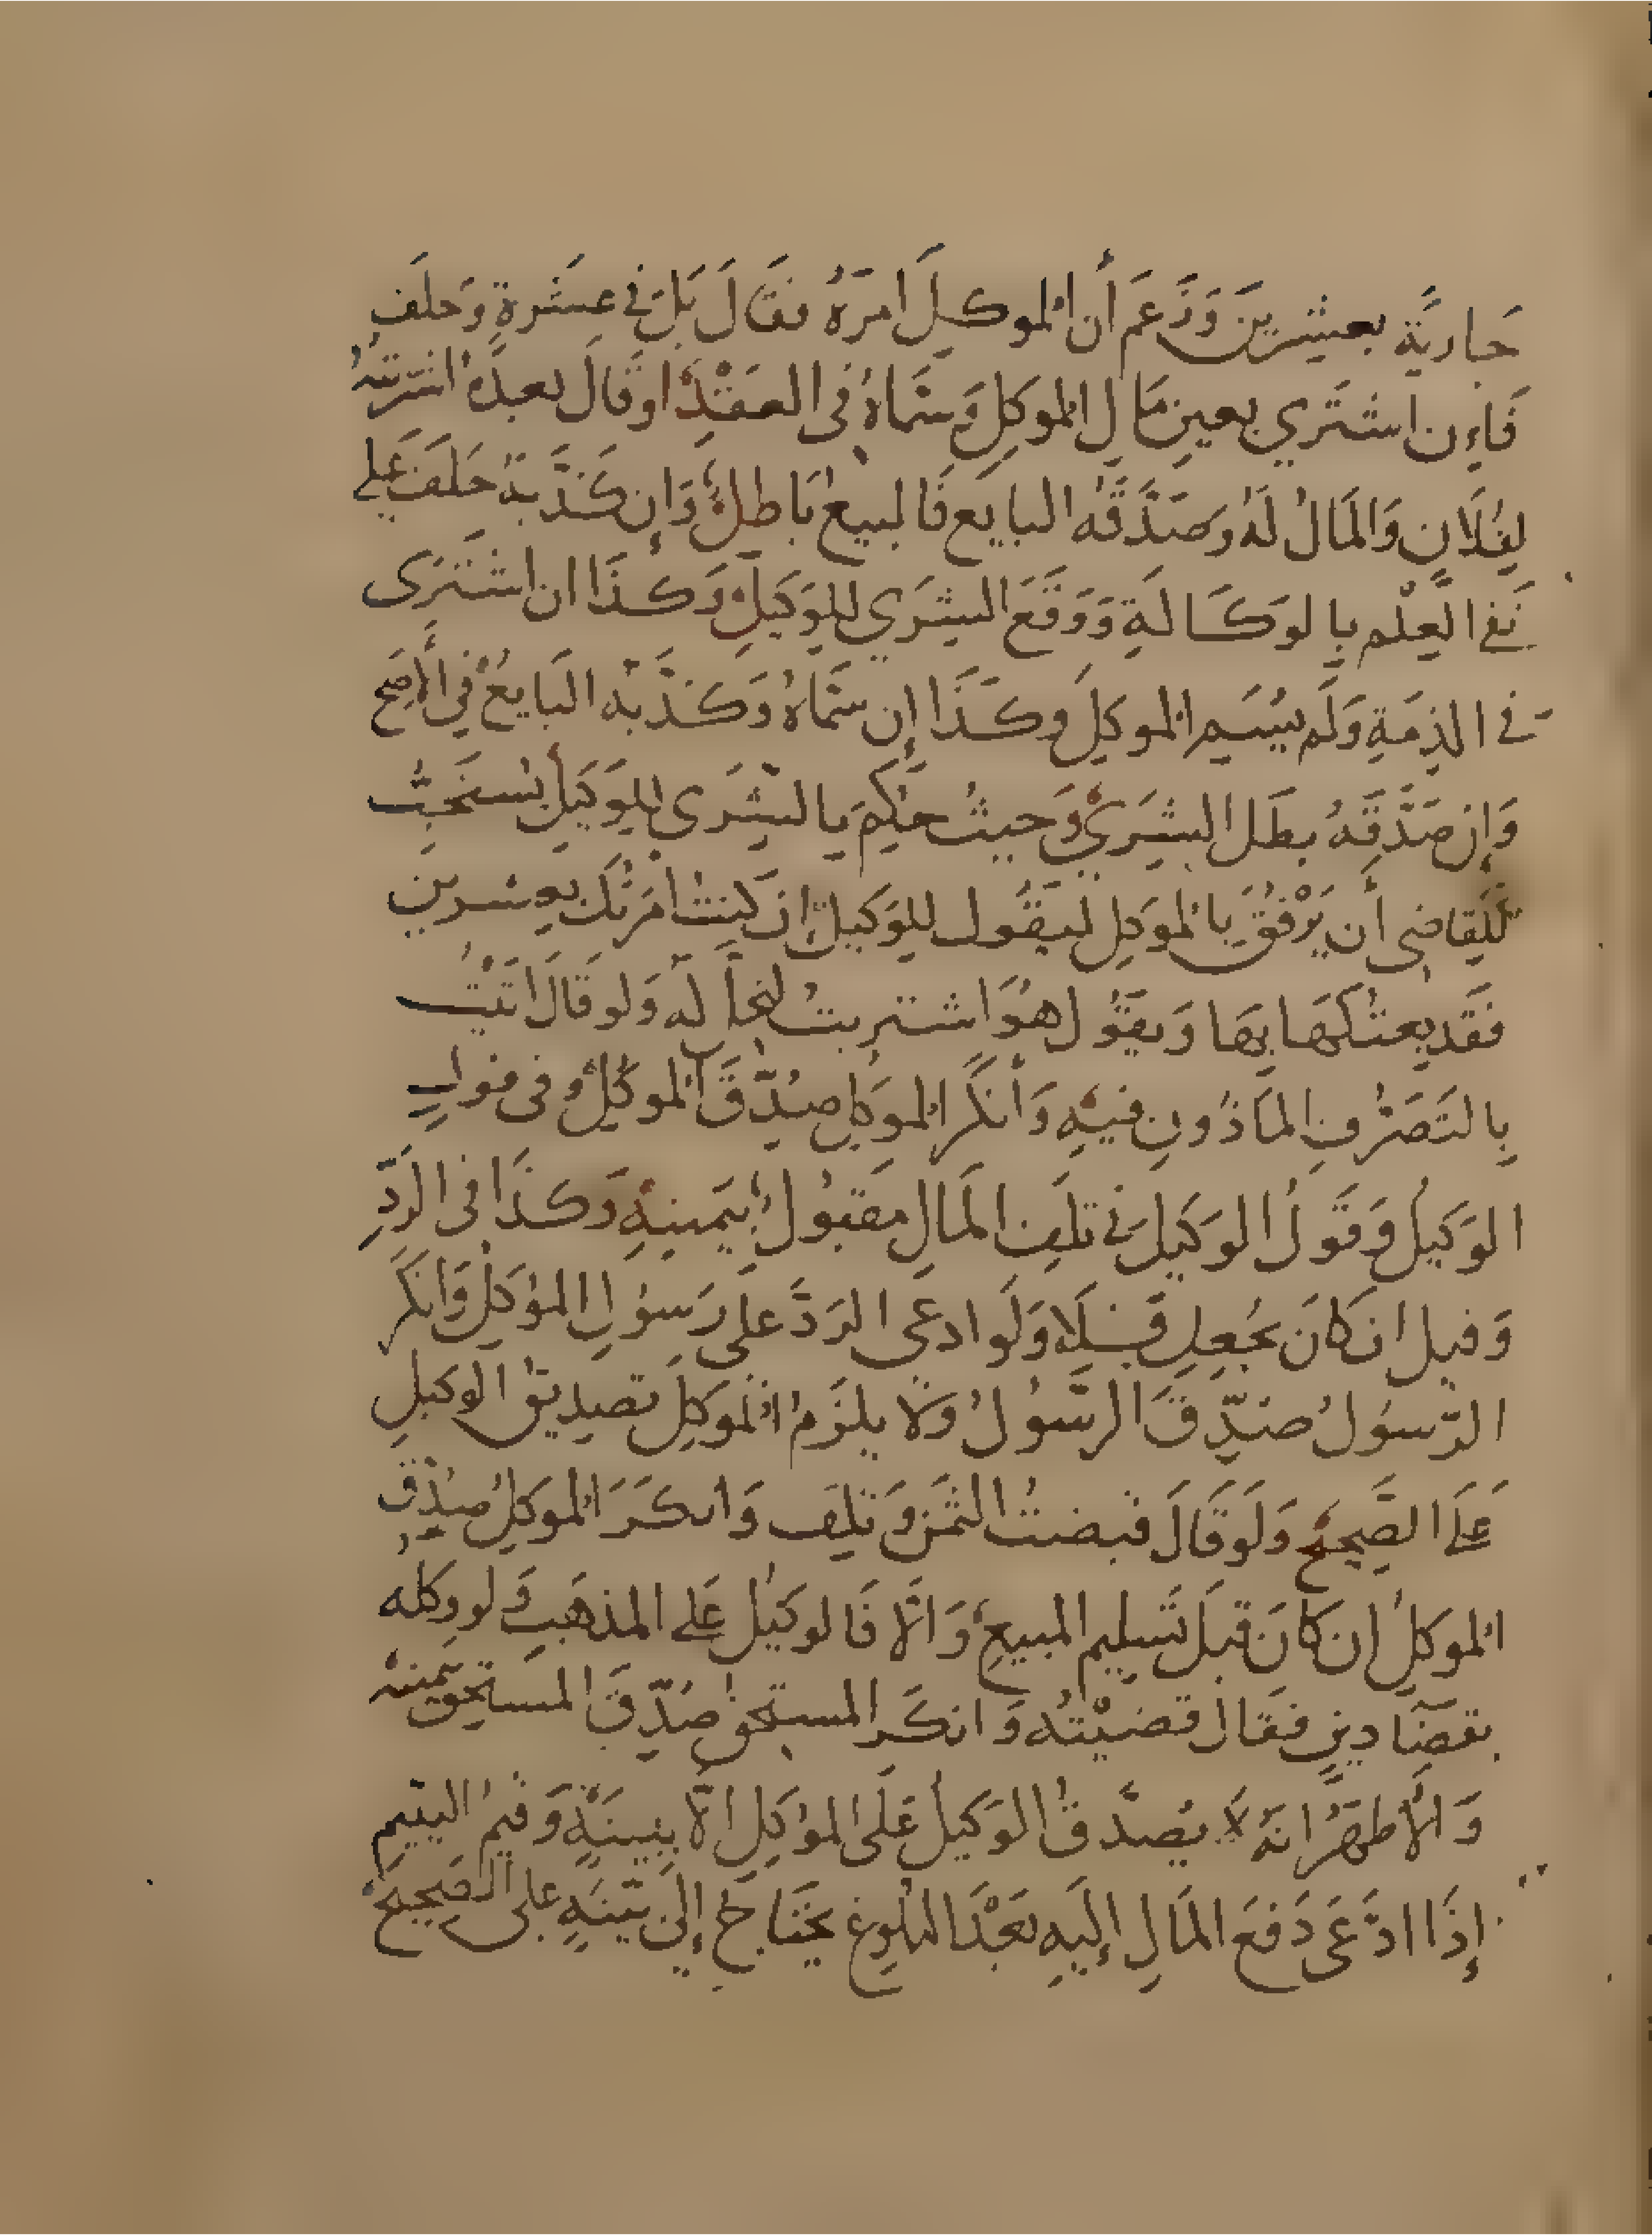 جاريَّة بعشرينَ وَزَعم أن الموكلَ امرَهُ فقالَ بَل في عشَرةٍ وَحلَف
فَاءِن اشتَري بعينِ مَالِ الموكلِ وَسَمَّاهُ فى العقْدِ او قَالَ بعدَهُ اشتريتهُ
لِفُلَانٍ وَالمَالُ لَهُ وَصَدَّقَهُ البايع فَالبيعُ بَاطلٌ وَإن كَذَّبهُ حَلَفَ عَلى
نَفى العِلْم بِالوَكَالَةِ وَوَقَعَ الشرَي للوَكيلِ وَكَذَا ان اشتَرَى
في الذِمَةِ وَلَم يُسَمِ الموكلَ وكَذَا إن سَمَّاهُ وَكَذَّبَه البَايعُ في الأَصَح
وَإن صَدَّقَهُ بطَل الشِرَي وَحيثُ حُكِمَ بالشِرَى للوَكيلِ يُستَحَبُ
للقاضى أن يَرْفُقَ بالموَكِلِ ليَقُول للوَكيلِ إن كنتُ امَرْتُكَ بعشرين
فَقَد بعتُكَهَا بِهَا وَيقَولُ هُوَ اشتريتُ لتحلَّ لَهُ وَلو قَالَ اتَيْتُ
بِالتَصَرُفِ المَاذُونِ فيهِ وَأنكَر الموَكلِ صُدِّقَ الموكلُ وفى قولٍ
الوَكيلُ وَقَولُ الوَكيلَ في تلَفِ المَالِ مَقبُولٌ بيَمينهِ وَكذَا فى الرَدِّ
وَقيل ان كانَ بجُعلٍ فَلَا وَلَو ادعَى الرَدَّ عَلى رَسوُلِ الموُكلِ وَانكَر
الرّسوُلُ صدِّقَ الرَّسُولُ وَلَا يلزَمُ الموَكلَ تصديقُ الوكيلِ
عَلَى الصَّحيحِ وَلَو قَالَ قبضتُ الثمَنَ وَتلِفَ وَانكَرَ الموكلُ صُدّقَ
الموكلُ ان كانَ قبَل تَسليم المبيعِ وَالَّا فَالوكيلُ عَلى المذهَبِ وَلو وكله
بقضَآ دينٍ فقَال قضيْتُه وَانكَر المستحقُ صُدّقَ المستحِق بيَمينه
وَالأظهَرُ انهُ لَا يُصدَّقُ الوَكيلُ عَلى الموُكلِ الَّا بِبينَةٍ وَقيمُ اليتيمِ
إذَا ادَّعَى دَفعَ المَالِ إليَهِ بَعْدَ البُلوغِ يَحتَاجُ إلَى بيّنَةٍ على الصَحيحِ